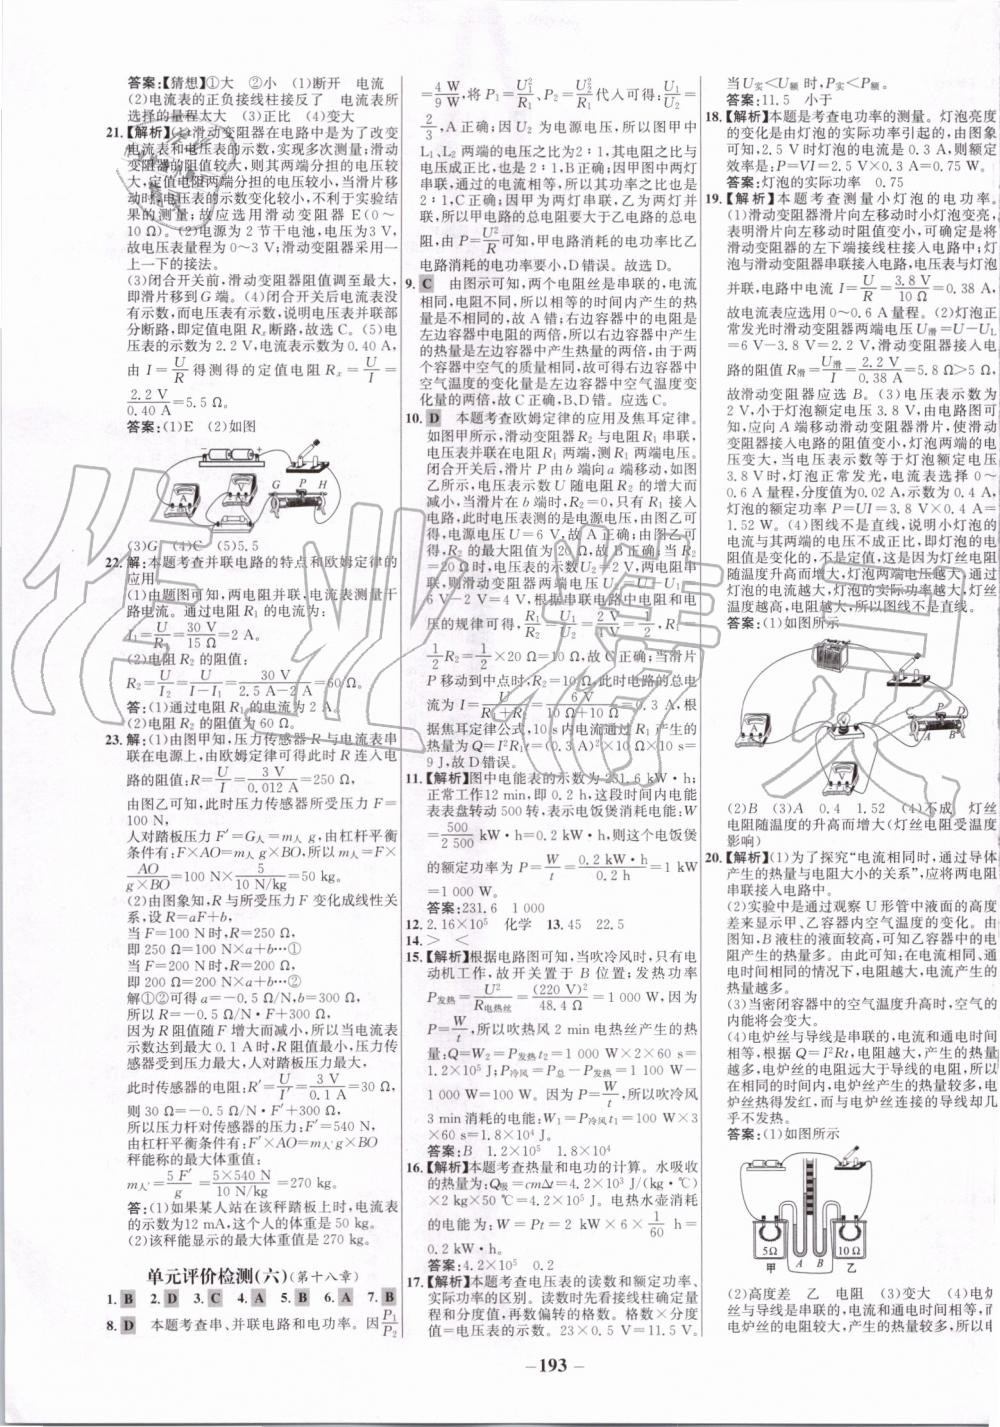 答案:【猜想】①大 ②小 (1)断开 电流
(2)电流表的正负接线柱接反了 电流表所
选择的量程太大 (3)正比 (4)变大
21.【解析】(1)滑动变阻器在电路中是为了改变
电流表和电压表的示数,实现多次测量;滑动
变阻器的阻值较大,则其两端分担的电压较
大,定值电阻两端分担的电压较小,当滑片移
动时,电压表的示数变化较小,不利于实验结
果的测量;故应选用滑动变阻器E(0~
10 Ω)。(2)电源为2节干电池,电压为3 V,
故电压表量程为0~3 V;滑动变阻器采用一
上一下的接法。
(3)闭合开关前,滑动变阻器阻值调至最大,
即滑片移到G端。(4)闭合开关后电流表没
有示数,而电压表有示数,说明电压表并联部
分断路,即定值电阻Rx断路,故选C。(5)电
压表的示数为2.2 V,电流表示数为0.40 A,
由 I=U/R 得测得的定值电阻 Rx=U/I=
2.2 V/0.40 A=5.5 Ω。
答案:(1)E (2)如图
G P H
(3)G (4)C (5)5.5
22.解:本题考查并联电路的特点和欧姆定律的
应用。
(1)由题图可知,两电阻并联,电流表测量干
路电流。通过电阻R1的电流为:
I1=U/R1=30 V/15 Ω=2 A。
(2)电阻R2的阻值:
R2=U/I2=U/(I-I1)=30 V/(2.5 A-2 A)=60 Ω。
答:(1)通过电阻R1的电流为2 A。
(2)电阻R2的阻值为60 Ω。
23.解:(1)由图甲知,压力传感器R与电流表串
联在电源上,由欧姆定律可得此时R连入电
路的阻值:R=U/I=3 V/0.012 A=250 Ω,
由图乙可知,此时压力传感器所受压力F=
100 N,
人对踏板压力F′=G人=m人g,由杠杆平衡
条件有:F×AO=m人g×BO,所以m人=F×
AO/(g×BO)=100 N×5/(10 N/kg)=50 kg。
(2)由图象知,R与所受压力F变化成线性关
系,设R=aF+b,
当F=100 N时,R=250 Ω,
即250 Ω=100 N×a+b…①
当F=200 N时,R=200 Ω,
即200 Ω=200 N×a+b…②
解①②可得a=-0.5 Ω/N,b=300 Ω,
所以R=-0.5 Ω/N·F+300 Ω,
因为R阻值随F增大而减小,所以当电流表
示数达到最大0.1 A时,R阻值最小,压力传
感器受到压力最大,人对踏板压力最大,
此时传感器的电阻:R′=U/I′=3 V/0.1 A=30 Ω,
所以有30 Ω=-0.5 Ω/N·F′+300 Ω,
所以压力杆对传感器的压力:F′=540 N,
由杠杆平衡条件有:F′×AO=m人′g×BO
秤能称的最大体重值:
m人′=5F′/g=5×540 N/(10 N/kg)=270 kg。
答:(1)如果某人站在该秤踏板上时,电流表
的示数为12 mA,这个人的体重是50 kg。
(2)该秤能显示的最大体重值是270 kg。
单元评价检测(六)(第十八章)
1. B 2. D 3. C 4. A 5. B 6. A 7. B
8. D 本题考查串、并联电路和电功率。因P1/P2
=4 W/9 W,将P1=U1²/R1、P2=U2²/R2代入可得:U1/U2=
2/3,A正确;因U为电源电压,所以图甲中
L1、L2两端的电压之比为2∶1,其电阻之比与
电压成正比,也是2∶1,B正确;因图甲中两灯
串联,通过的电流相等,所以其电功率之比为
2∶1,C正确;因图甲为两灯串联,乙为两灯并
联,所以甲电路的总电阻要大于乙电路的总电
阻,由P=U²/R可知,甲电路消耗的电功率比乙
电路消耗的电功率要小,D错误。故选D。
9. C 由图示可知,两个电阻丝是串联的,电流
相同,电阻不同,所以相等的时间内产生的热
量是不相同的,故A错;右边容器中的电阻是
左边容器中电阻的两倍,所以右边容器中产生
的热量是左边容器中产生热量的两倍,由于两
个容器中空气的质量相同,故可得右边容器中
空气温度的变化量是左边容器中空气温度变
化量的两倍,故C对,B、D错。应选C。
10. D 本题考查欧姆定律的应用及焦耳定律。
如图甲所示,滑动变阻器R2与电阻R1串联,
电压表并联在电阻R2两端,测R2两端电压。
闭合开关后,滑片P由b端向a端移动,如图
乙所示,电压表示数U随电阻R2的增大而
减小,当滑片在b端时,R2=0,只有R1接入
电路,此时电压表测的是电源电压,由图乙可
知,电源电压U=6 V,故A正确;由图乙可
知,R2的最大阻值为20 Ω,故B正确;当R2
=20 Ω时,电压表的示数U2=2 V,两电阻串
联,则R1两端电压U1=U-U2=
6 V-2 V=4 V,根据串联电路中电阻和电
压的规律可得,R1/R2=
1/2 R2=1/2×20 Ω=10 Ω,故C正确;当滑片
P移动到中点时,R2′=10 Ω,此时电路的总电
流为I=U/(R1+R2′)=6 V/(10 Ω+10 Ω)=0.3 A,
根据焦耳定律公式,10 s内电流通过R1产生
的热量为Q=I²R1t=(0.3 A)²×10 Ω×10 s=
9 J,故D错误。
11.【解析】图中电能表的示数为231.6 kW·h;
正常工作12 min,即0.2 h,这段时间内电能
表表盘转动500转,表示电饭煲消耗电能:W
=500/2 500 kW·h=0.2 kW·h,则这个电饭煲
的额定功率为P=W/t=0.2 kW·h/0.2 h=1 kW
=1 000 W。
答案:231.6 1 000
12. 2.16×10⁵ 化学 13. 45 22.5
14. > <
15.【解析】根据电路图可知,当吹冷风时,只有电
动机工作,故开关置于B位置;发热功率
P发热=U²/R电热丝=(220 V)²/48.4 Ω=1 000 W,因为
P=W/t,所以吹热风2 min电热丝产生的热
量:Q=W2=P发热t2=1 000 W×2×60 s=
1.2×10⁵ J;P冷风=P总-P发热=1 100 W-
1 000 W=100 W。因为P=W/t,所以吹冷风
3 min消耗的电能:W1=P冷风t1=100 W×3
×60 s=1.8×10⁴ J。
答案:B 1.2×10⁵ 1.8×10⁴
16.【解析】本题考查热量和电功的计算。水吸收
的热量为:Q吸=cmΔt=4.2×10³ J/(kg·℃)
×2 kg×50 ℃=4.2×10⁵ J。电热水壶消耗
的电能为:W=Pt=2 kW×6×1/60 h=
0.2 kW·h。
答案:4.2×10⁵ 0.2
17.【解析】本题考查电压表的读数和额定功率、
实际功率的区别。读数时先看接线柱确定量
程和分度值,再数偏转的格数。格数×分度
值=电压表的示数。23×0.5 V=11.5 V。
当U实<U额时,P实<P额。
答案:11.5 小于
18.【解析】本题是考查电功率的测量。灯泡亮度
的变化是由灯泡的实际功率引起的,由图象
可知,2.5 V时灯泡的电流是0.3 A,则额定
功率是:P=UI=2.5 V×0.3 A=0.75 W。
答案:灯泡的实际功率 0.75
19.【解析】本题考查测量小灯泡的电功率。
(1)滑动变阻器滑片向左移动时小灯泡变亮,
表明滑片向左移动时电阻变小,可确定是将滑
动变阻器的左下端接线柱接入电路中;灯
泡与滑动变阻器串联接入电路,电压表与灯泡
并联,电路中电流I=U/R=3.8 V/10 Ω=0.38 A,
故电流表应选用0~0.6 A量程。(2)灯泡正
常发光时滑动变阻器两端电压U滑=U-UL
=6 V-3.8 V=2.2 V,滑动变阻器接入电
路的阻值R滑=U滑/I=2.2 V/0.38 A=5.8 Ω>5 Ω,
故滑动变阻器应选B。(3)电压表示数为
2 V,小于灯泡额定电压3.8 V,由电路图可
知,应向A端移动滑动变阻器滑片,使滑动
变阻器接入电路的阻值变小,灯泡两端的电
压变大,当电压表示数等于灯泡额定电压
3.8 V时,灯泡正常发光,电流表选择0~
0.6 A量程,分度值为0.02 A,示数为0.4 A,
灯泡的额定功率为P=UI=3.8 V×0.4 A=
1.52 W。(4)图线不是直线,说明小灯泡的
电流与其两端的电压不成正比,即灯丝的电
阻值是变化的,不是定值,这是因为灯丝电阻
随温度升高而增大,灯泡两端电压越大,通过
灯泡的电流越大,灯泡的实际功率越大,灯丝
温度越高,电阻越大,所以图线不是直线。
答案:(1)如图所示
P D A B
(2)B (3)A 0.4 1.52 (4)不成 灯丝
电阻随温度的升高而增大(灯丝电阻受温度
影响)
20.【解析】(1)为了探究“电流相同时,通过导体
产生的热量与电阻大小的关系”,应将两电阻
串联接入电路中。
(2)实验中是通过观察U形管中液面的高度
差来显示甲、乙容器内空气温度的变化。由
图知,B液柱的液面较高,可知乙容器中电阻
产生的热量多。由此可知:在电流相同、通
电时间相同的情况下,电阻越大,电流产生的
热量越多。
(3)当密闭容器中的空气温度升高时,空气的
内能将会变大。
(4)电炉丝与导线是串联的,电流和通电时间
相等,根据Q=I²Rt,电阻越大,产生的热量
越多,电炉丝的电阻远大于导线的电阻,所以
在相同的时间内,电炉丝产生的热量较多,电
炉丝热得发红,而与电炉丝连接的导线却几
乎不发热。
答案:(1)如图所示
5Ω A B 10Ω
甲 乙
(2)高度差 乙 电阻 (3)变大 (4)电炉
丝与导线是串联的,电流和通电时间相等,而
电炉丝的电阻较大,产生的热量较多,所以电
– 193 –